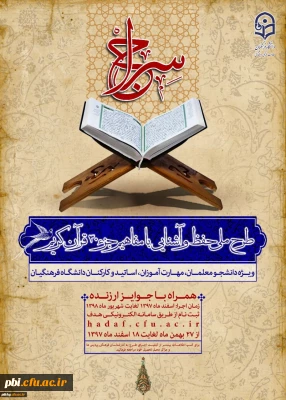 سراج
طرح ملی حفظ و آشنایی با مفاهیم جزء ۳۰ قرآن کریم
ویژه دانشجو معلمان، مهارت آموزان، اساتید و کارکنان دانشگاه فرهنگیان
همراه با جوایز ارزنده
زمان اجرا: اسفند ماه ۱۳۹۷ لغایت شهریور ماه ۱۳۹۸
ثبت نام از طریق سامانه الکترونیکی هدف
hadaf.cfu.ac.ir
از ۲۷ بهمن ماه لغایت ۱۸ اسفند ماه ۱۳۹۷
pbl.cfu.ac.ir
pbl.cfu.ac.ir